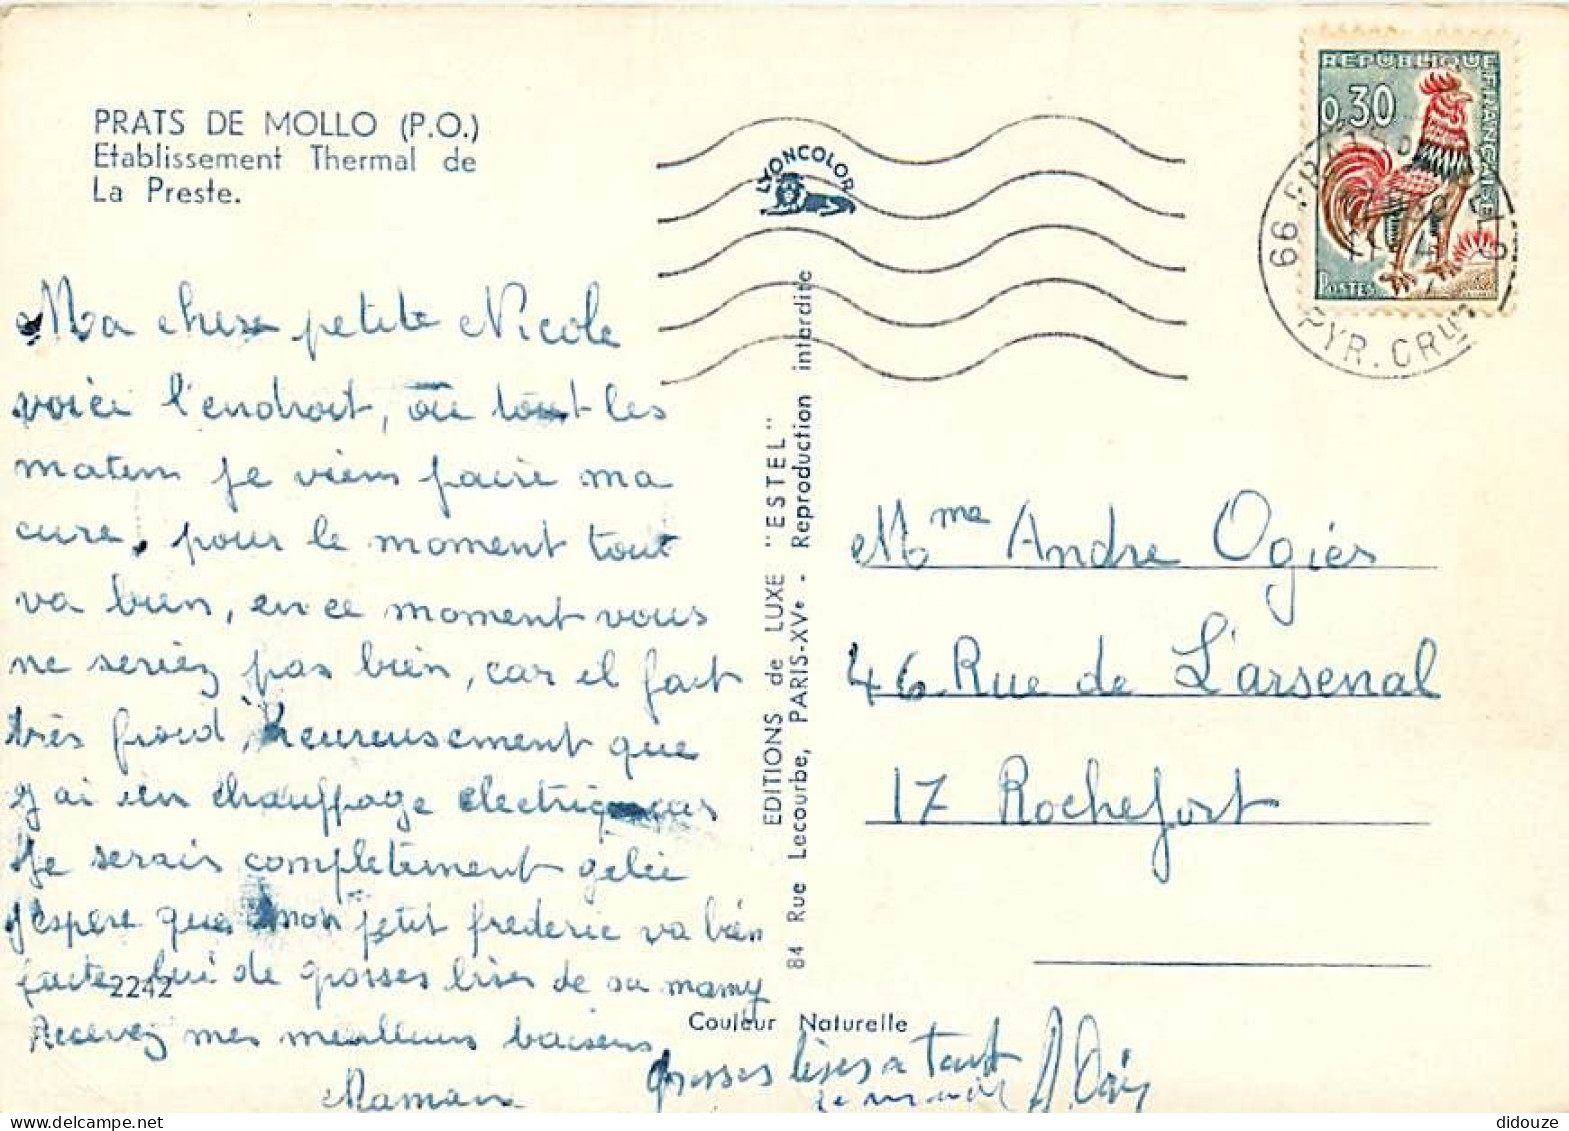 PRATS DE MOLLO (P.O.)
Etablissement Thermal de
La Preste.
LYONCOLOR
REPUBLIQUE FRANÇAISE
0,30
POSTES
66 PRATS D
PYR. OR
Ma chere petite Nicole
voici l'endroit, ou tout les
matins je viens faire ma
cure, pour le moment tout
va bien, en ce moment vous
ne seriez pas bien, car il fait
très froid, heureusement que
j'ai un chauffage electrique
je serais completement gelée
j'espere que mon petit frederic va bien
faite lui de grosses bises de sa mamy
Recevez mes meilleurs baisers
Maman
2242
EDITIONS de LUXE "ESTEL"
84 Rue Lecourbe, PARIS-XVe - Reproduction interdite
Couleur Naturelle
Mme Andre Ogiés
46 Rue de L'arsenal
17 Rochefort
grosses bises a tout
le monde
didouze
delcampe.net